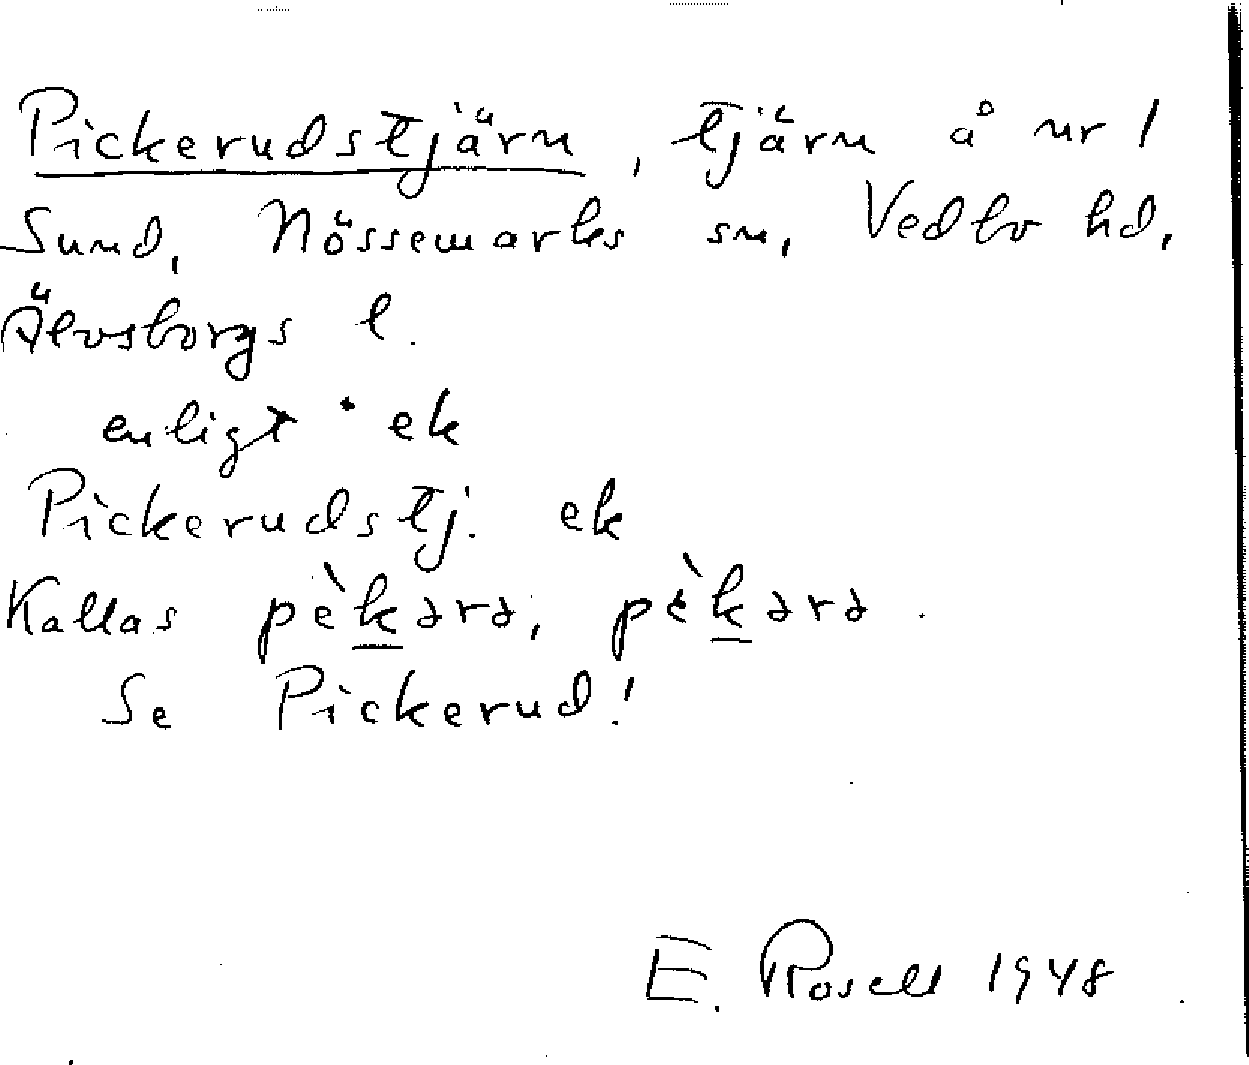 Pickerudstjärn, tjärn å nr 1
Sund, Nössemarks sn, Vedbo hd,
Älvsborgs l.
enligt ek
Pickerudstj. ek
Kallas pèkərə, pèkərə.
Se Pickerud!
E. Rosell 1948